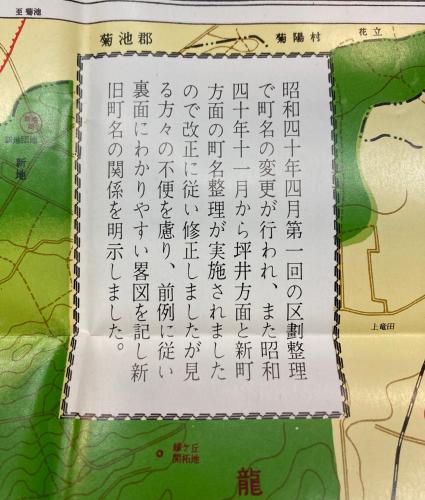 至 菊池
菊池郡
菊陽村
花立
昭和四十年四月第一回の区劃整理
で町名の変更が行われ、また昭和
四十年十一月から坪井方面と新町
方面の町名整理が実施されました
ので改正に従い修正しましたが見
る方々の不便を慮り、前例に従い
裏面にわかりやすい畧図を記し新
旧町名の関係を明示しました。
新地団地
新地
上竜田
緑ケ丘
開拓地
龍